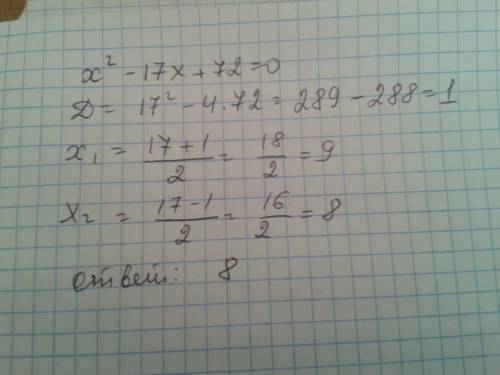 x² - 17x + 72 = 0
D = 17² - 4 · 72 = 289 - 288 = 1
x₁ = (17 + 1)/2 = 18/2 = 9
x₂ = (17 - 1)/2 = 16/2 = 8
ответ: 8